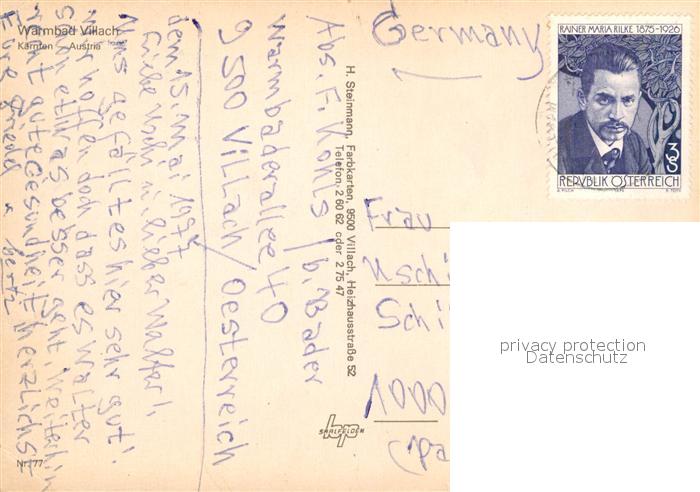 Warmbad Villach
Kärnten - Austria
Abs. F. Kohls / b. Bader
Warmbaderallee 40
9500 Villach / Oesterreich
den 15. Mai 1977
Liebe Uschi u. lieber Walter!
Uns gefällt es hier sehr gut!
wir hoffen doch dass es Walter
schon etwas besser geht. Weiterhin
recht gute Gesundheit herzlichst
Eure Friedel u.
H. Steinmann, Farbkarten, 9500 Villach, Heizhausstraße 52
Telefon 2 60 62 oder 2 75 47
top
SAALFELDEN
Nr. 77
Germany
RAINER MARIA RILKE 1875-1926
S3
REPUBLIK ÖSTERREICH
Frau
Uschi
Schi
1000
privacy protection
Datenschutz